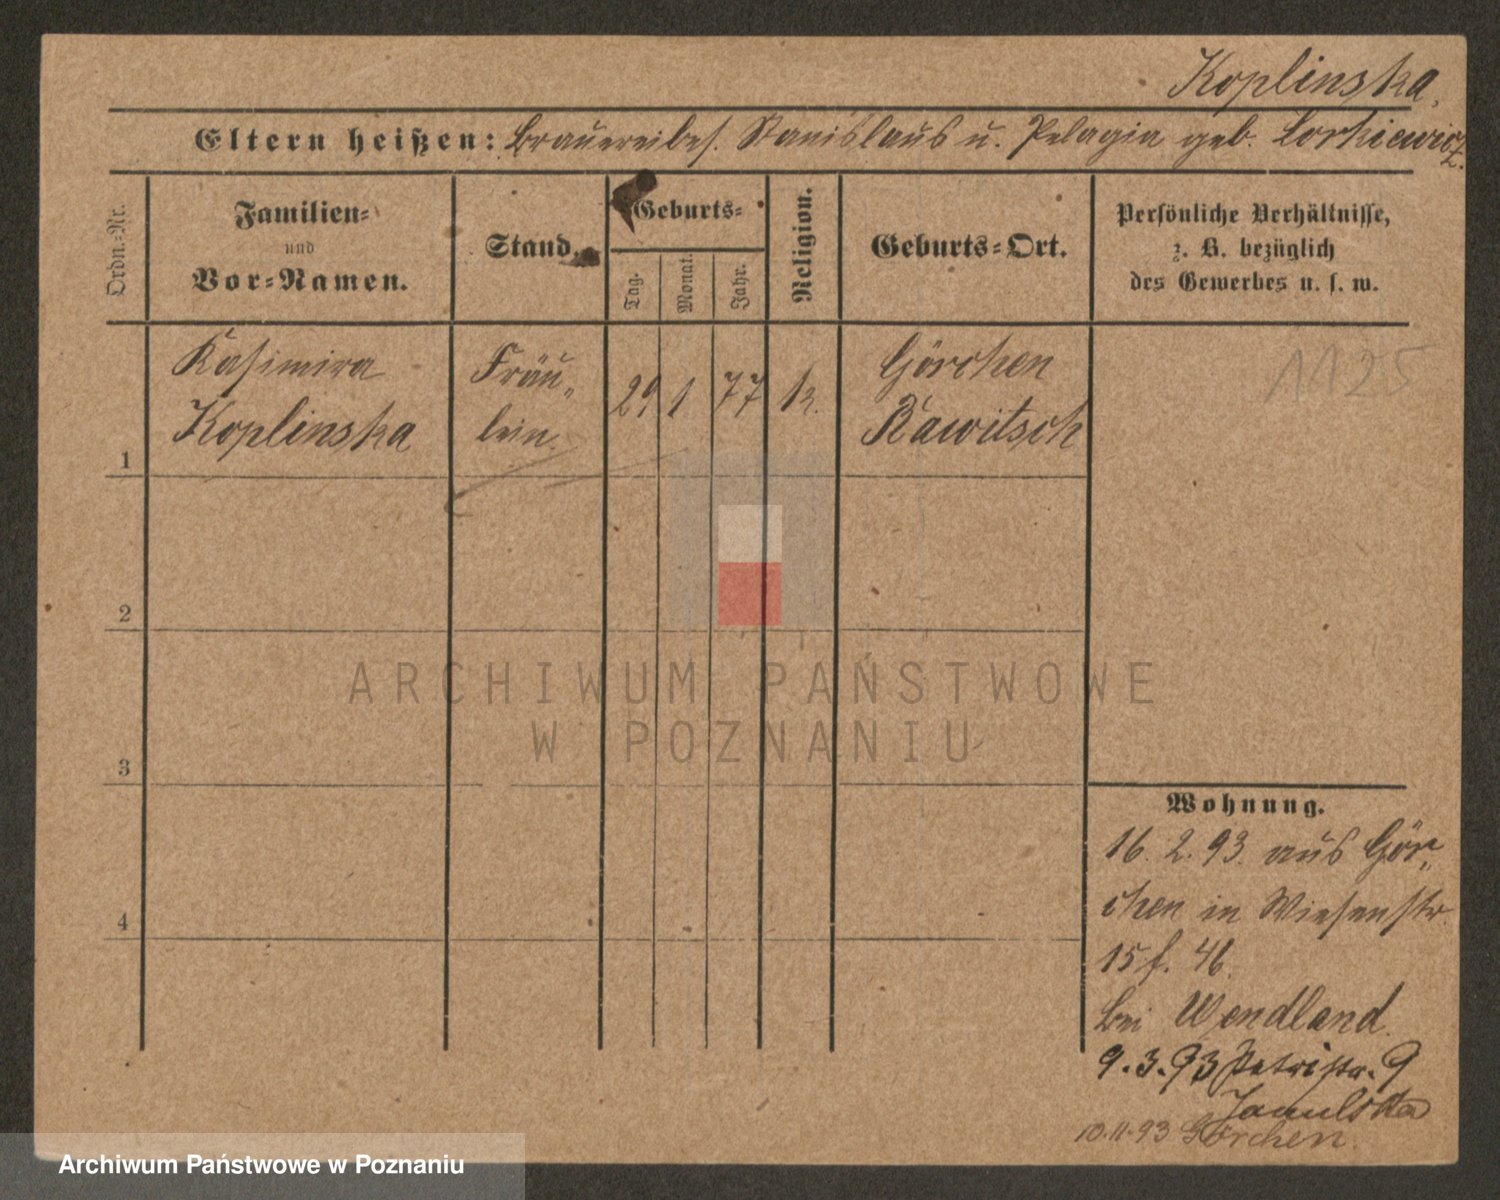 Koplinska.
Eltern heißen: Brauereibes. Stanislaus u. Pelagia geb. Lorkiewicz.
Ordn.-Nr.
Familien-
und
Vor-Namen.
Stand.
Geburts-
Tag.
Monat.
Jahr.
Religion.
Geburts-Ort.
Persönliche Verhältnisse,
z. B. bezüglich
des Gewerbes u. s. w.
1
Kasimira
Koplinska
Fräu„
lein.
29 1 77 k.
Görchen
Rawitsch
1125
2
3
4
Wohnung.
16. 2. 93. aus Gör„
chen in Wiesenstr.
15 f. 46.
bei Wendland.
9. 3. 93 Petristr. 9
10.11.93 Görchen.
ARCHIWUM PAŃSTWOWE
W POZNANIU
Archiwum Państwowe w Poznaniu